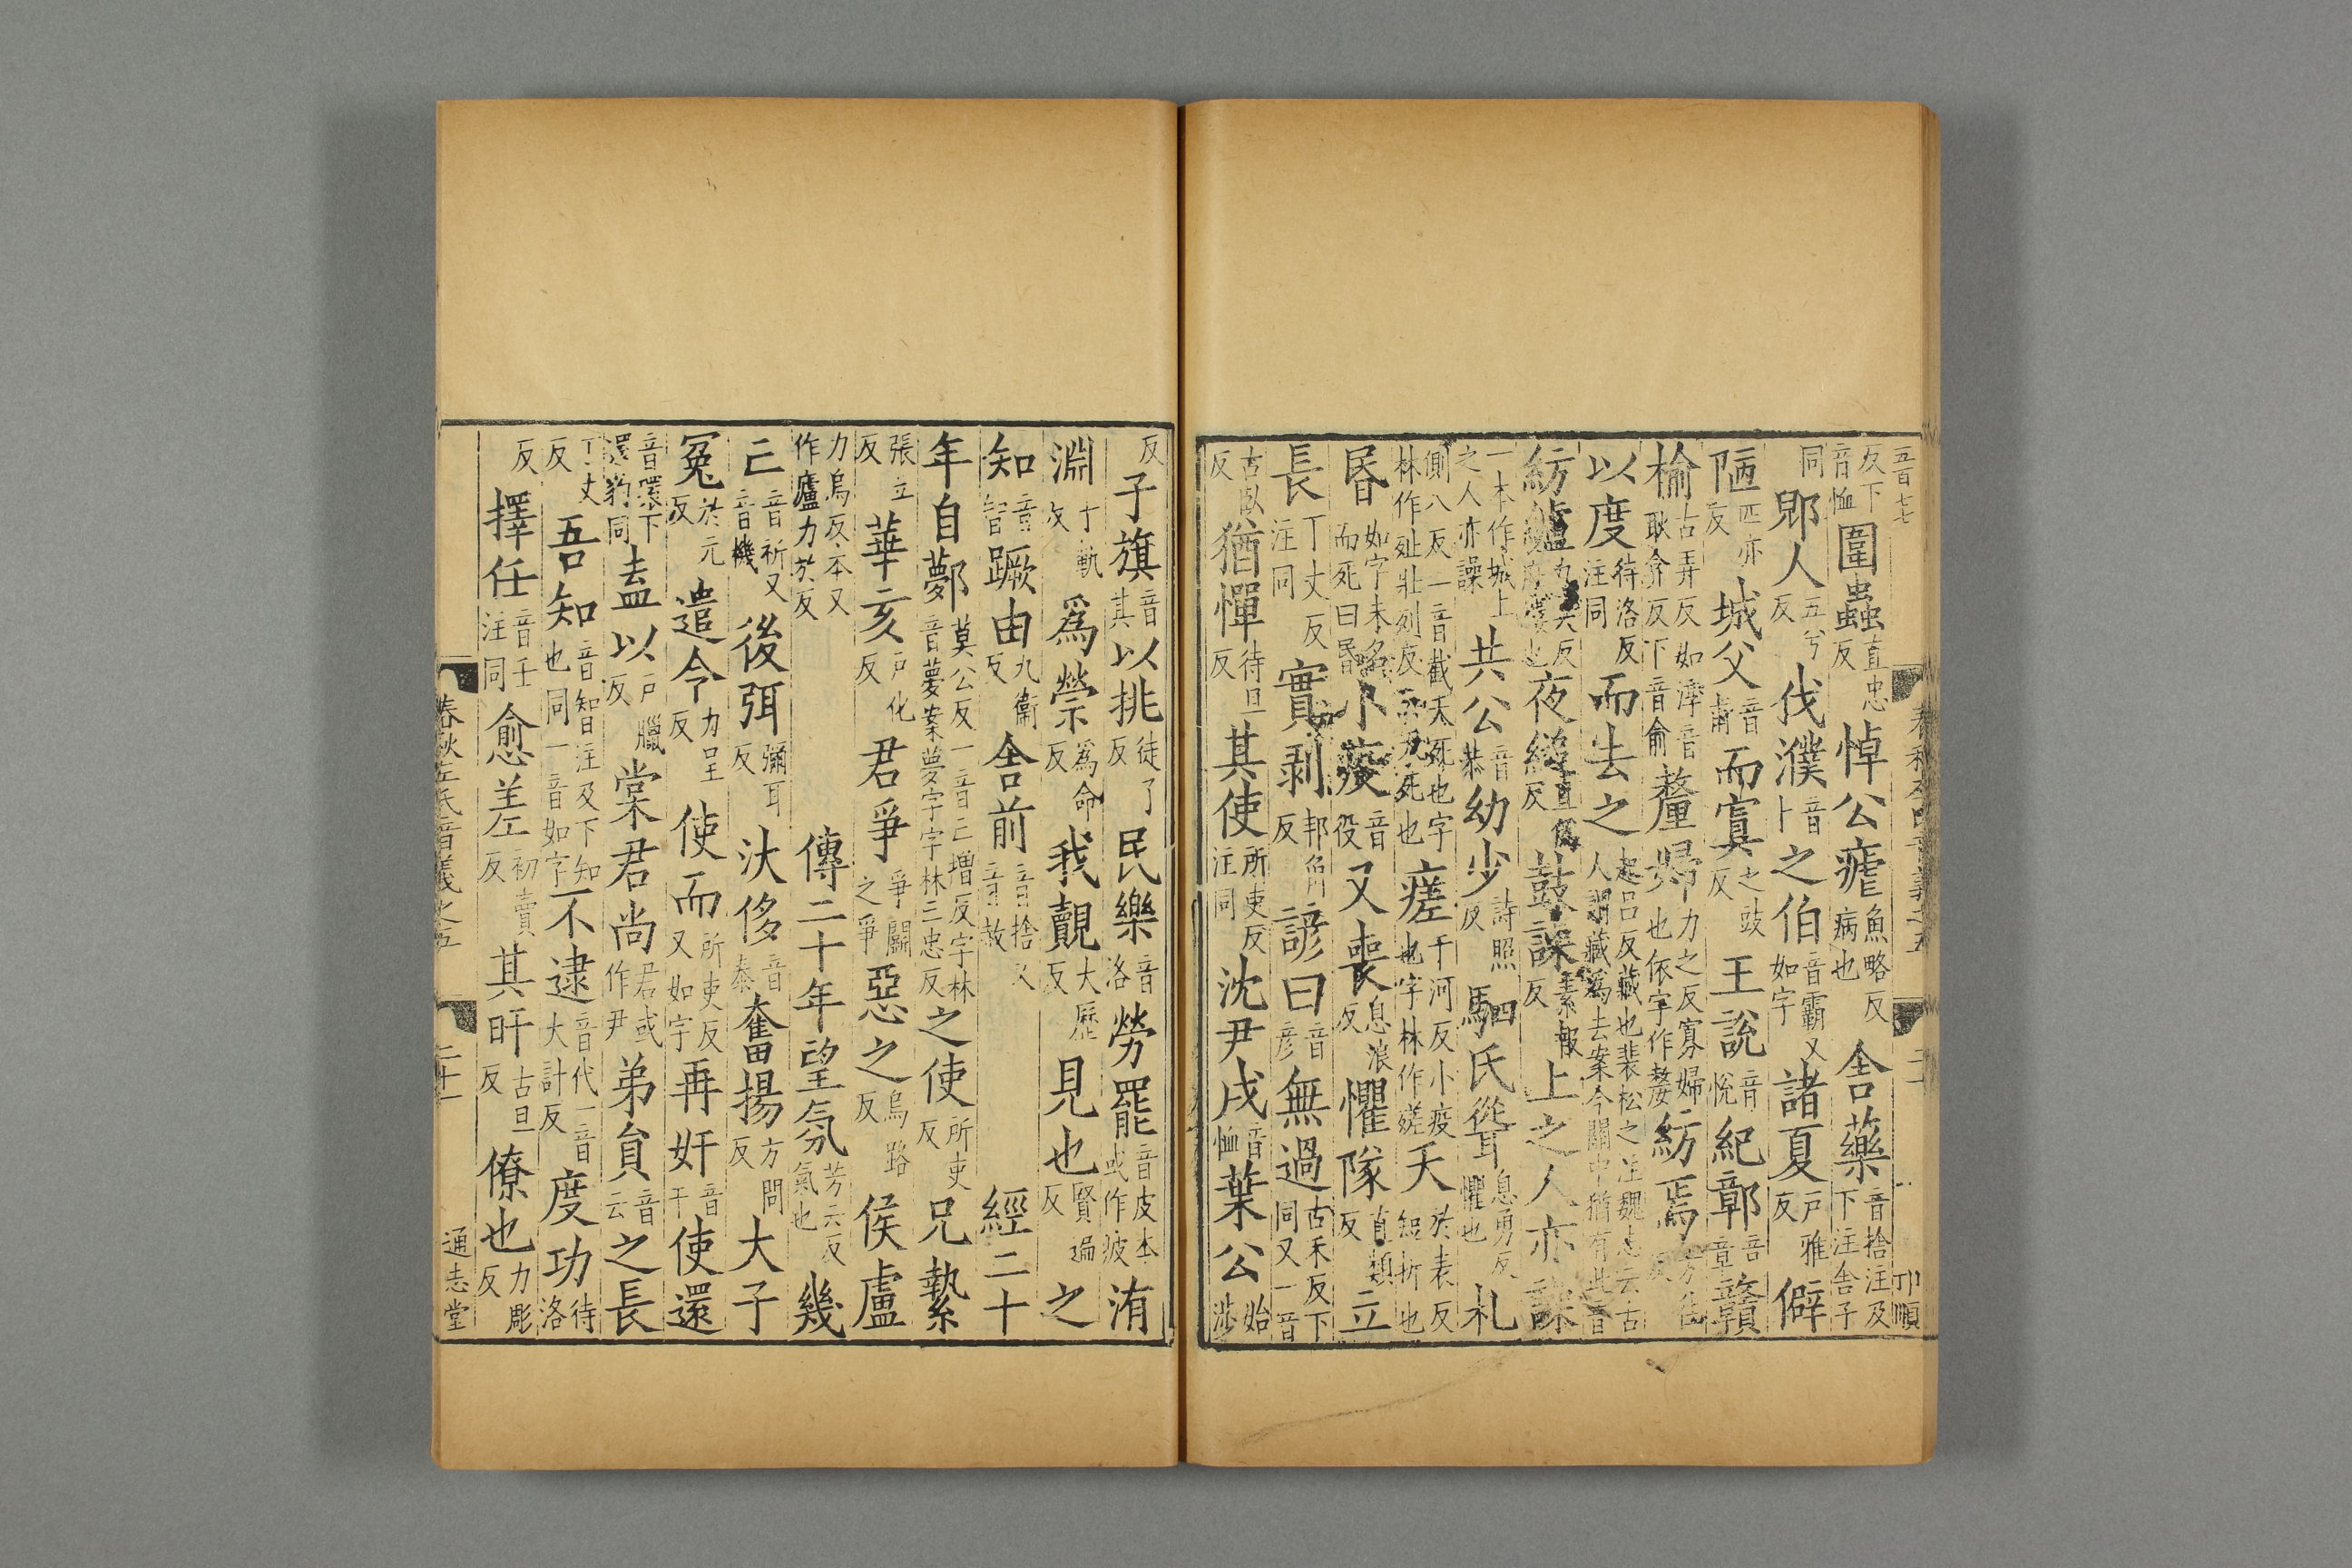 五百七七
反下音恤圍蟲直忠反悼公瘧魚略反病也舍藥音捨注及下注舍子
同郳人五兮反伐濮音卜之伯音霸又如字諸夏戶雅反僻
陋匹亦反城父音甫而寘之豉反王說音悅紀鄣音章贛
榆古弄反如淳音耿弇反下音俞嫠婦力之反寡婦也依字作嫠紡焉芳往反
以度待洛反注同而去之起呂反藏也裴松之注魏志云古人謂藏爲去案今關中猶有此音
紡纑夜縋直僞反鼓譟素報反上之人亦譟
一本作城上之人亦譟共公音恭幼少詩照反駟氏聳息勇反懼也札
側八反一音截夭死也字林作壯列反瘥千河反小疫也字林作㽨夭於表反短折也
昬如字未名而死曰昬卜疫音役又喪息浪反懼隊直類反立
長丁丈反注同實剥邦角反諺曰音彥無過古禾反下同又一音
古臥反猶憚待旦反其使所吏反注同沈尹戌音恤葉公始涉
反子旗音其以挑徒了反民樂音洛勞罷音皮本或作疲洧
淵于軌反爲禜爲命反我覿大歷反見也賢遍反之
知音智蹶由九衞反舍前音捨又音赦經二十
年自鄸莫公反一音亡增反字林音夢案夢字字林亡忠反之使所吏反兄縶
張立反華亥戶化反君爭爭鬭之爭惡之烏路反侯盧
力烏反本又作廬力於反傳二十年望氛芳云反氣也幾
亡音祈又音機後弭彌耳反汏侈音泰奮揚方問反大子
冤於元反遣令力呈反使而所吏反又如字再奸音干使還
音環下還豹同盍以戶臘反棠君尚君或作尹弟員音云之長
丁丈反吾知音智注及下知也同一音如字不逮音代一音大計反度功待洛
反擇任音壬注同愈差初賣反其旰古旦反僚也力彫反
春秋左氏音義之五 二十一 通志堂